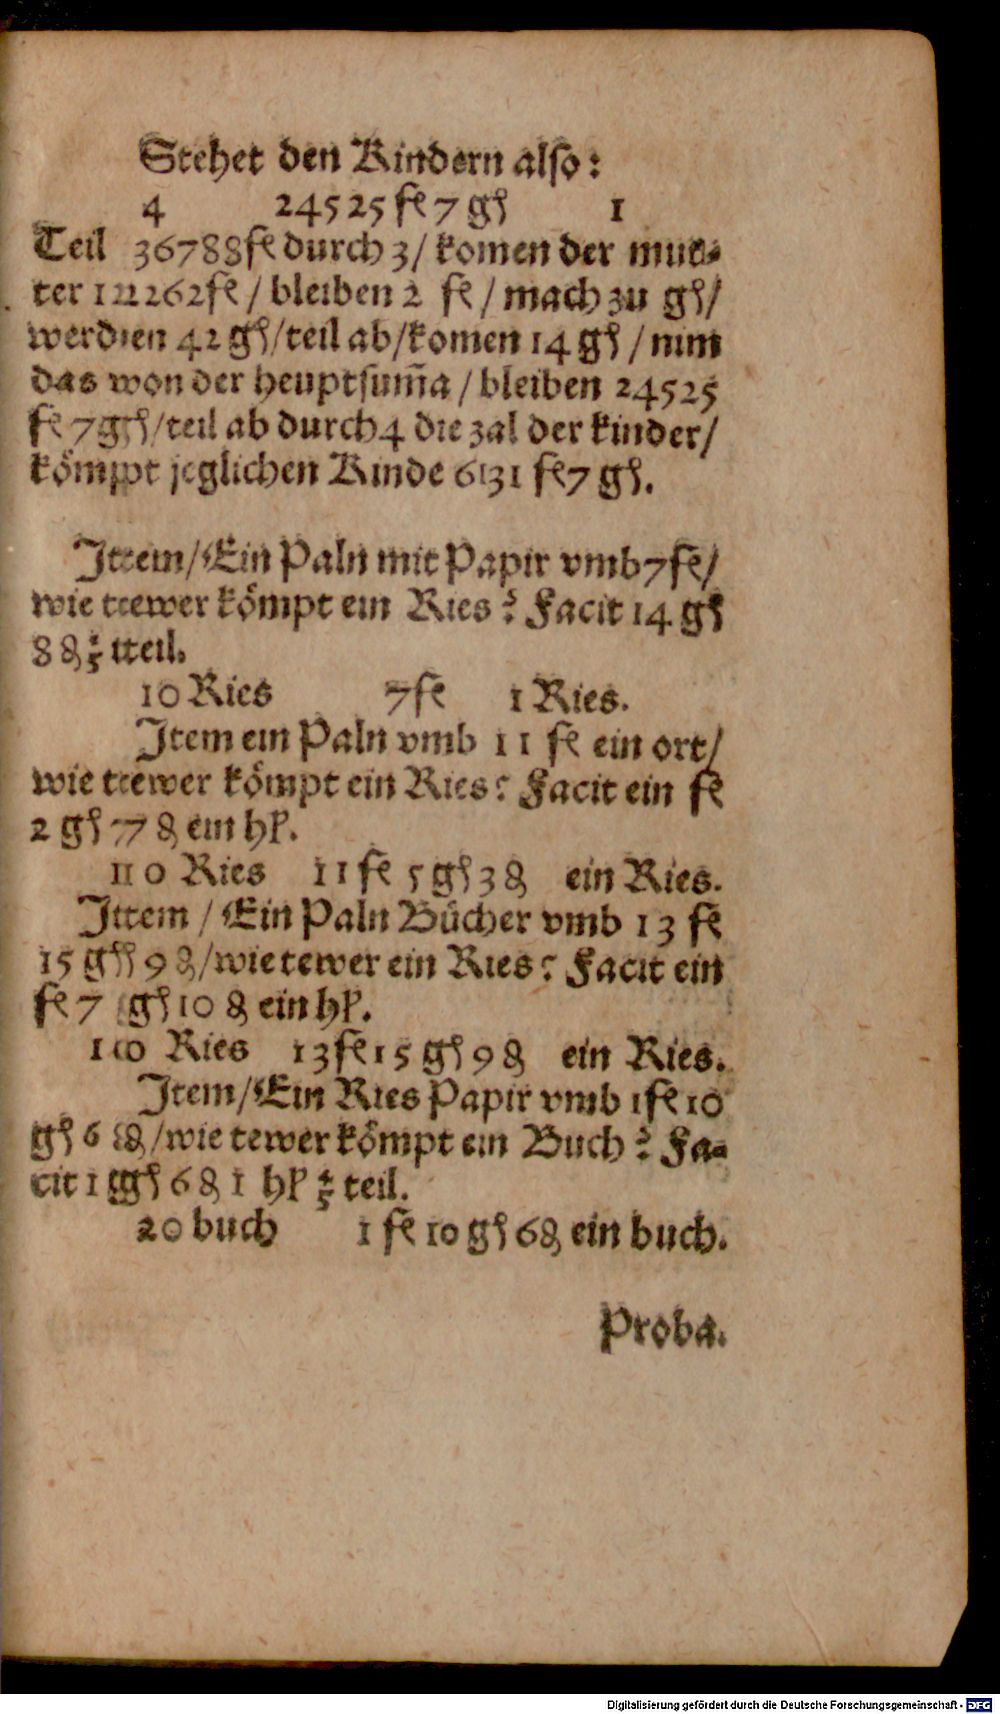 Stehet den Kindern also:
4 24525 fl 7 gß 1
Teil 36788 fl durch 3/ komen der mut-
ter 12262 fl / bleiben 2 fl / mach zu gß/
werden 42 gß/teil ab/komen 14 gß / nim
das von der heuptsum̃a / bleiben 24525
fl 7 gß/teil ab durch 4 die zal der kinder/
kömpt jeglichen Kinde 6131 fl 7 gß.
Item/Ein Paln mit Papir vmb 7 fl/
wie tewer kömpt ein Ries? Facit 14 gß
8 ₰ ⅖ teil.
10 Ries 7 fl 1 Ries.
Item ein Paln vmb 11 fl ein ort/
wie tewer kömpt ein Ries? Facit ein fl
2 gß 7 ₰ ein hl.
10 Ries 11 fl 5 gß 3 ₰ ein Ries.
Item / Ein Paln Bücher vmb 13 fl
15 gß 9 ₰/wie tewer ein Ries? Facit ein
fl 7 gß 10 ₰ ein hl.
10 Ries 13 fl 15 gß 9 ₰ ein Ries.
Item/Ein Ries Papir vmb 1 fl 10
gß 6 ₰/wie tewer kömpt ein Buch? Fa-
cit 1 gß 6 ₰ 1 hl ⅖ teil.
20 buch 1 fl 10 gß 6 ₰ ein buch.
Proba.
Digitalisierung gefördert durch die Deutsche Forschungsgemeinschaft - DFG